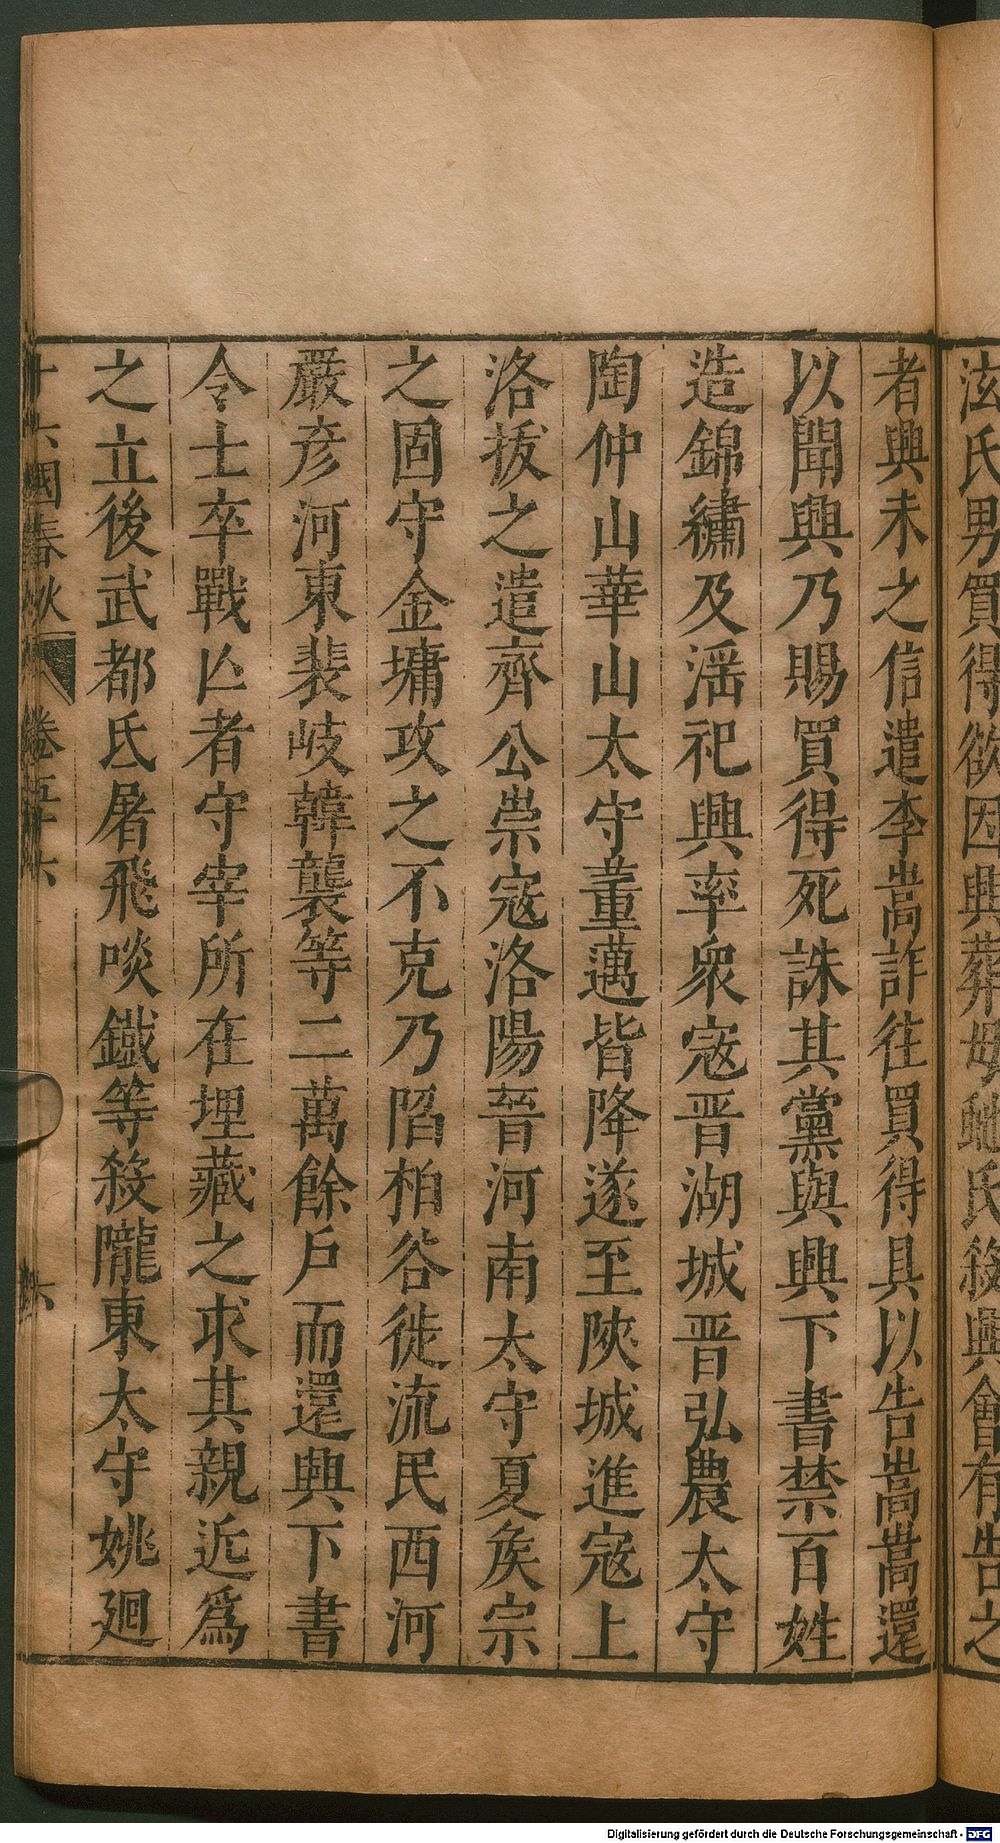 泫氏男買得欲因興葬母虵氏殺興會有告之
者興未之信遣李嵩詐往買得具以告嵩嵩還
以聞興乃賜買得死誅其黨與興下書禁百姓
造錦繡及滛祀興率衆寇晋湖城晋弘農太守
陶仲山華山太守董邁皆降遂至陝城進寇上
洛拔之遣齊公崇寇洛陽晉河南太守夏矦宗
之固守金墉攻之不克乃陷柏谷徙流民西河
嚴彦河東裴岐韓襲等二萬餘戶而還興下書
令士卒戰亾者守宰所在埋藏之求其親近爲
之立後武都氐屠飛啖鐵等殺隴東太守姚廻
十六國春秋 卷五十六 六
Digitalisierung gefördert durch die Deutsche Forschungsgemeinschaft - DFG